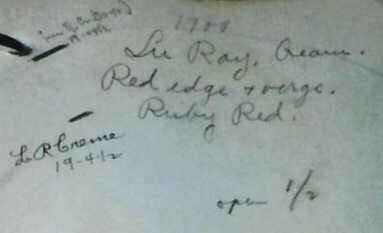 1900
Lu Ray, Cream.
Red edge + verge.
Ruby Red.
L R Creme
19-4½
open 1/2